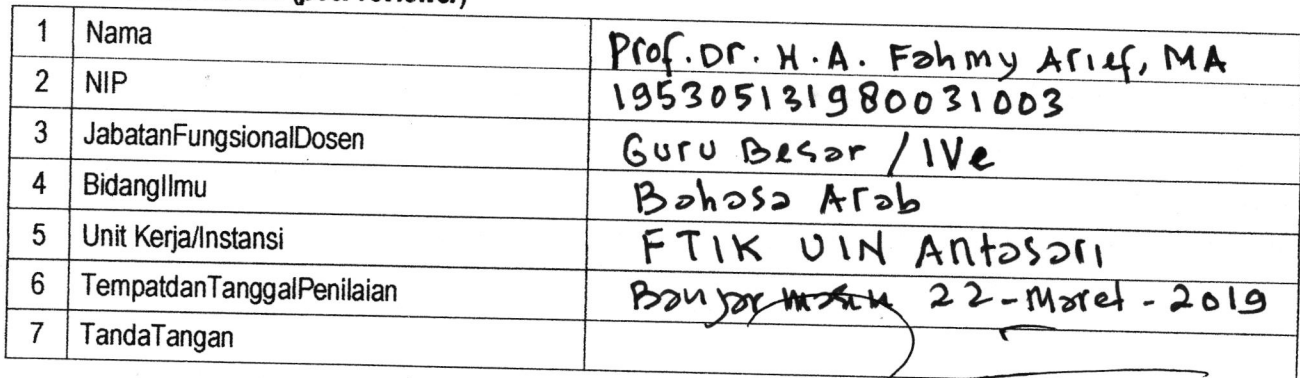 (peer reviewer)
1 Nama Prof. Dr. H. A. Fahmy Arief, MA
2 NIP 195305131980031003
3 JabatanFungsionalDosen Guru Besar / IVe
4 BidangIlmu Bahasa Arab
5 Unit Kerja/Instansi FTIK UIN Antasari
6 TempatdanTanggalPenilaian Banjarmasin 22-Maret-2019
7 TandaTangan